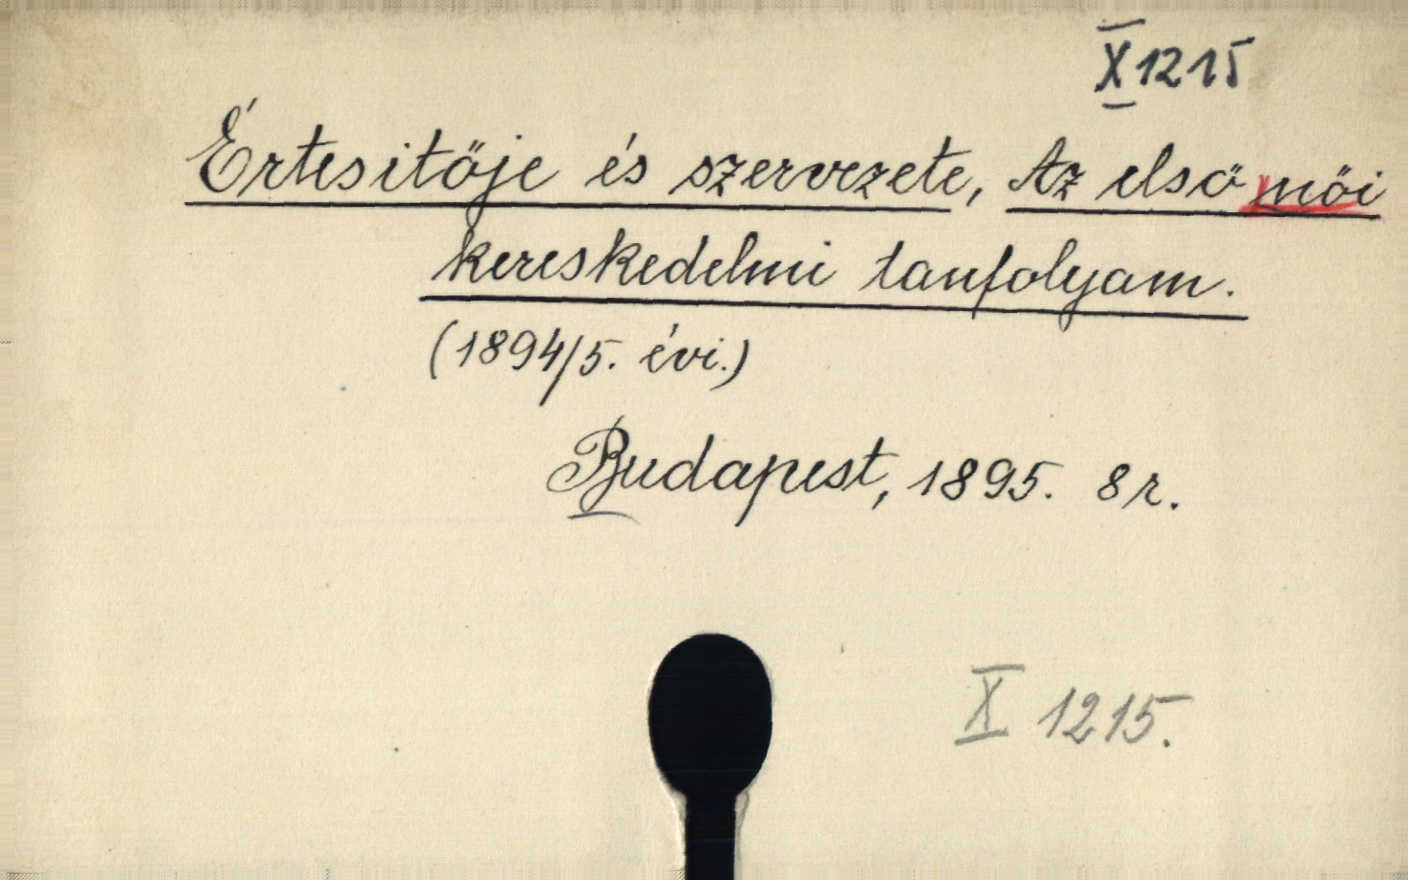 X 1215
Értesitője és szervezete, Az első női
kereskedelmi tanfolyam.
(1894/5. évi.)
Budapest, 1895. 8r.
X 1215.